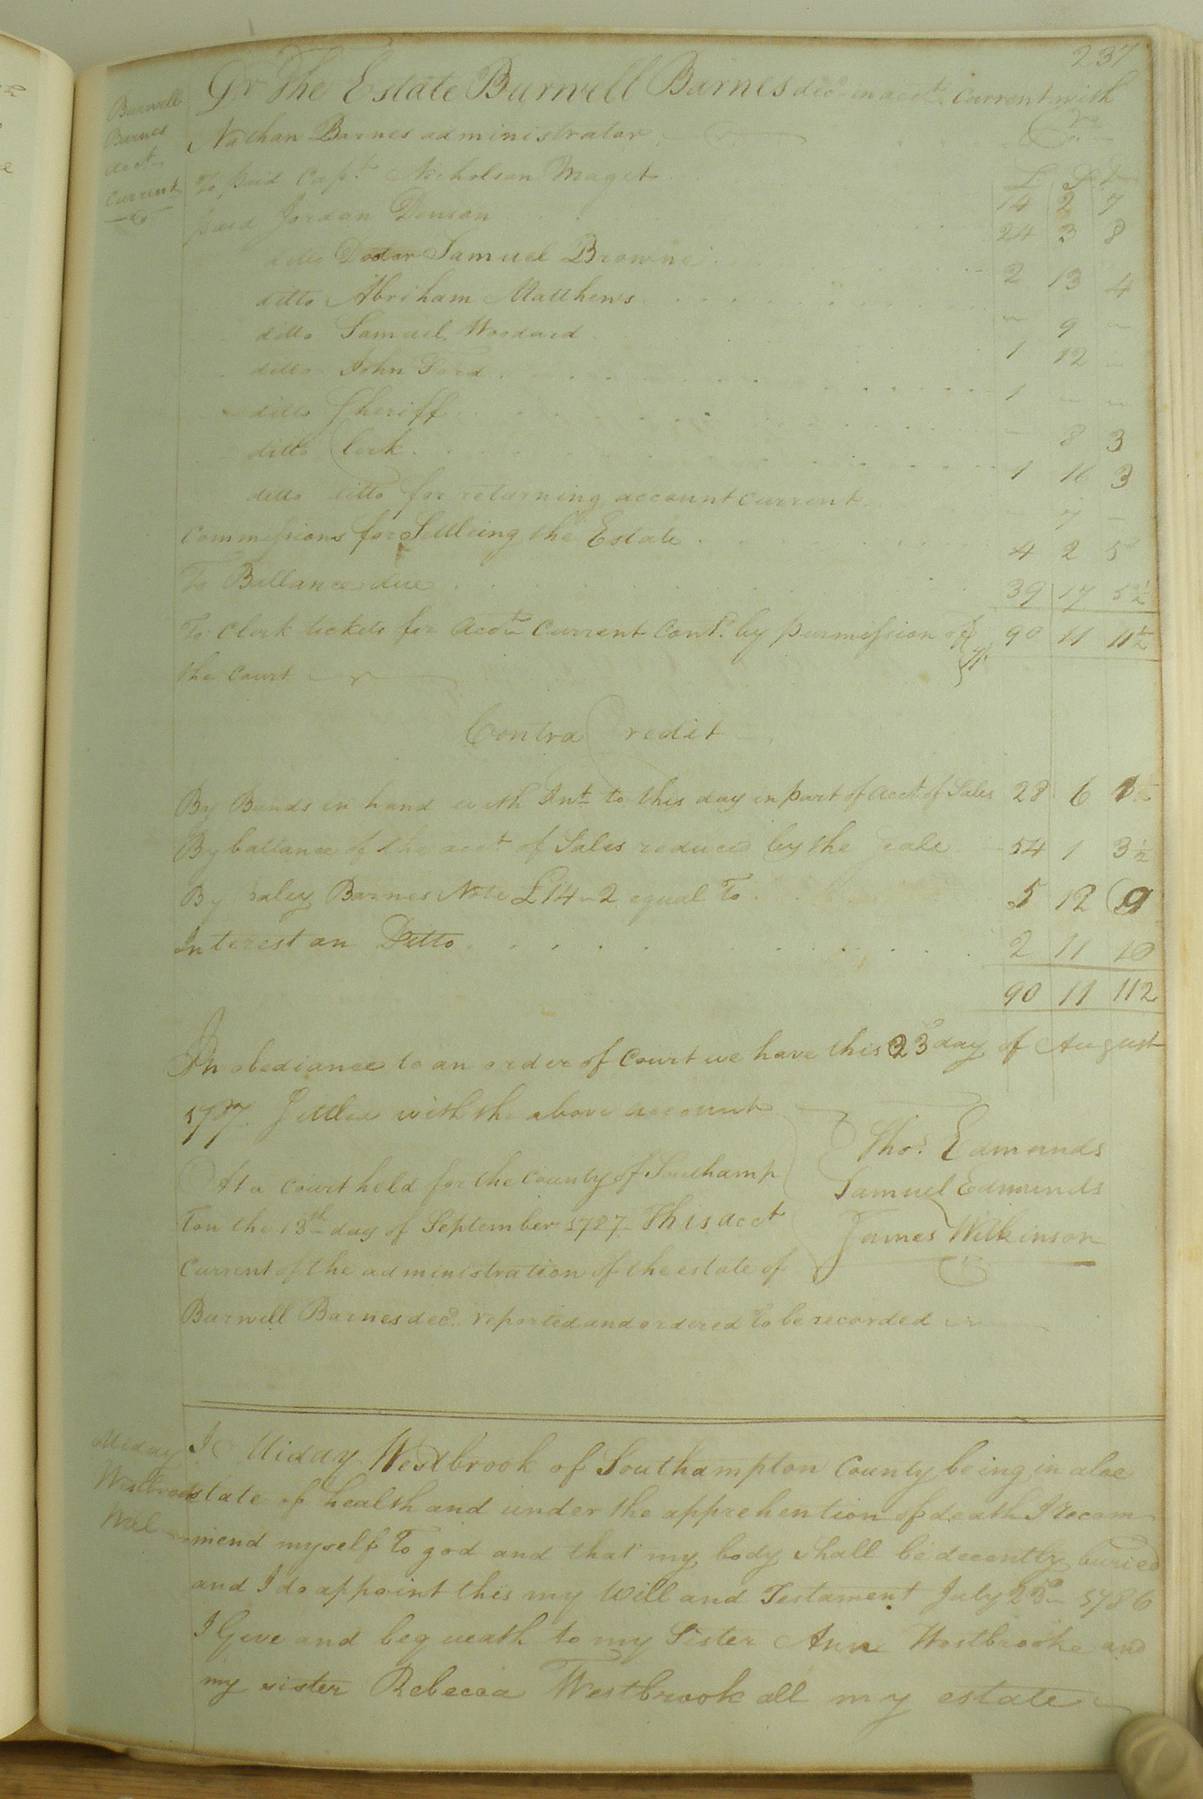 237
Burwell
Barnes
acct
Current
Dr The Estate Burwell Barnes decd in acct Current with
Nathan Barnes administrator Cr
£ S D
To paid Capt. Nicholson Maget 14 2 7
paid Jordan Denson 24 3 8
ditto Doctor Samuel Browne 2 13 4
ditto Abriham Matthews ~ 9 ~
ditto Samuel Woodard 1 12 ~
ditto John Ford 1 ~ ~
ditto Sheriff ~ 8 3
ditto Clerk 1 16 3
ditto ditto for returning account current ~ 7 ~
Commissions for Settleing the Estate 4 2 5
To Ballance due 39 17 5½
To Clerk tickets for acct Current Contd. by permission of 90 11 11½
the Court
Contra Credit
By Bonds in hand with Int to this day in part of acct of Sales 28 6 1
By ballance of the acct of Sales reduced by the scale 54 1 3½
By Barnes Note £14~2 equal To 5 12 9
Interest on Ditto 2 11 10
90 11 112
In obediance to an order of Court we have this 23d day of August
1787. Settled with the above account
Thos. Edmunds
Samuel Edmunds
James Wilkinson
At a Court held for the County of Southamp
ton the 13th day of September 1787 This acct
Current of the administration of the estate of
Burwell Barnes decd. reported and ordered to be recorded
Westbrook
Will
I Westbrook of Southampton County being in a loe
state of health and under the apprehention of death I recom
mend myself To god and that my body shall be decently buried
and I do appoint this my Will and Testament July 25 1786
I Give and bequeath to my Sister Ann Westbrooke and
my sister Rebecca Westbrook all my estate